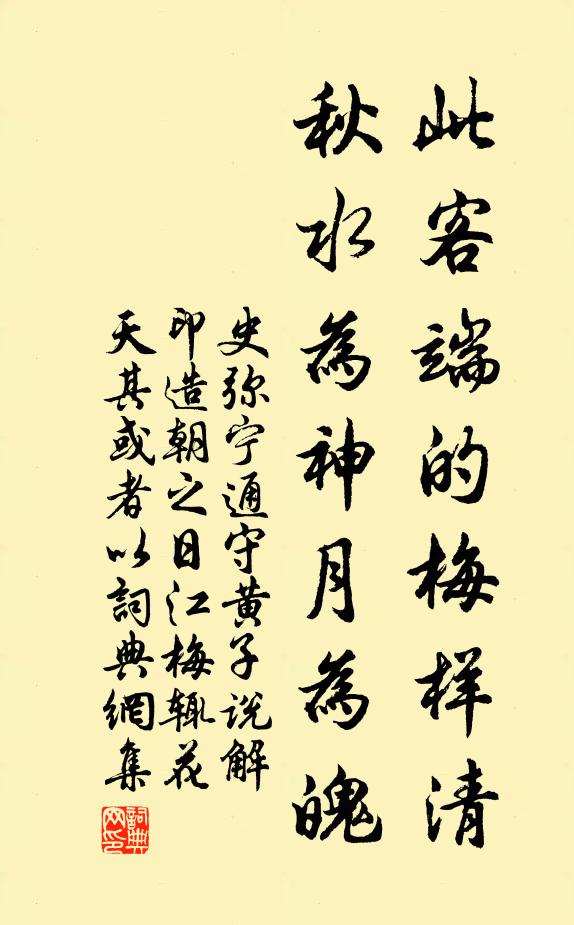 此客端的梅样清
秋水為神月為魄
史弥宁通守黄子说解
印造朝之日江梅辄花
天其或者以詞典網集
詞典網印